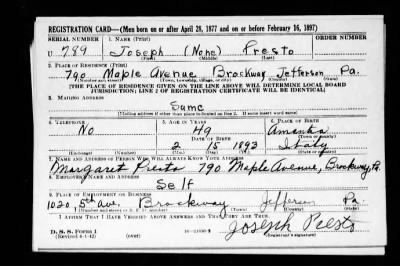 REGISTRATION CARD—(Men born on or after April 28, 1877 and on or before February 16, 1897)
SERIAL NUMBER 1. NAME (Print)
U 789 Joseph (None) Presto
(First) (Middle) (Last)
2. PLACE OF RESIDENCE (Print)
790 Maple Avenue Brockway Jefferson Pa.
(Number and street) (Town, township, village, or city) (County) (State)
[THE PLACE OF RESIDENCE GIVEN ON THE LINE ABOVE WILL DETERMINE LOCAL BOARD
JURISDICTION; LINE 2 OF REGISTRATION CERTIFICATE WILL BE IDENTICAL]
3. MAILING ADDRESS
Same
[Mailing address if other than place indicated on line 2. If same insert word same]
4. TELEPHONE 5. AGE IN YEARS 6. PLACE OF BIRTH
No 49 Amanta
DATE OF BIRTH (Town or county)
2 15 1893 Italy
(Exchange) (Number) (Mo.) (Day) (Yr.) (State or country)
7. NAME AND ADDRESS OF PERSON WHO WILL ALWAYS KNOW YOUR ADDRESS
Margaret Presto 790 Maple Avenue, Brockway, Pa.
8. EMPLOYER'S NAME AND ADDRESS
Self
9. PLACE OF EMPLOYMENT OR BUSINESS
1020 5th Ave. Brockway Jefferson Pa.
(Number and street or R. F. D. number) (Town) (County) (State)
I AFFIRM THAT I HAVE VERIFIED ABOVE ANSWERS AND THAT THEY ARE TRUE.
D. S. S. Form 1
(Revised 4-1-42) (over) Joseph Presto
(Registrant's signature)